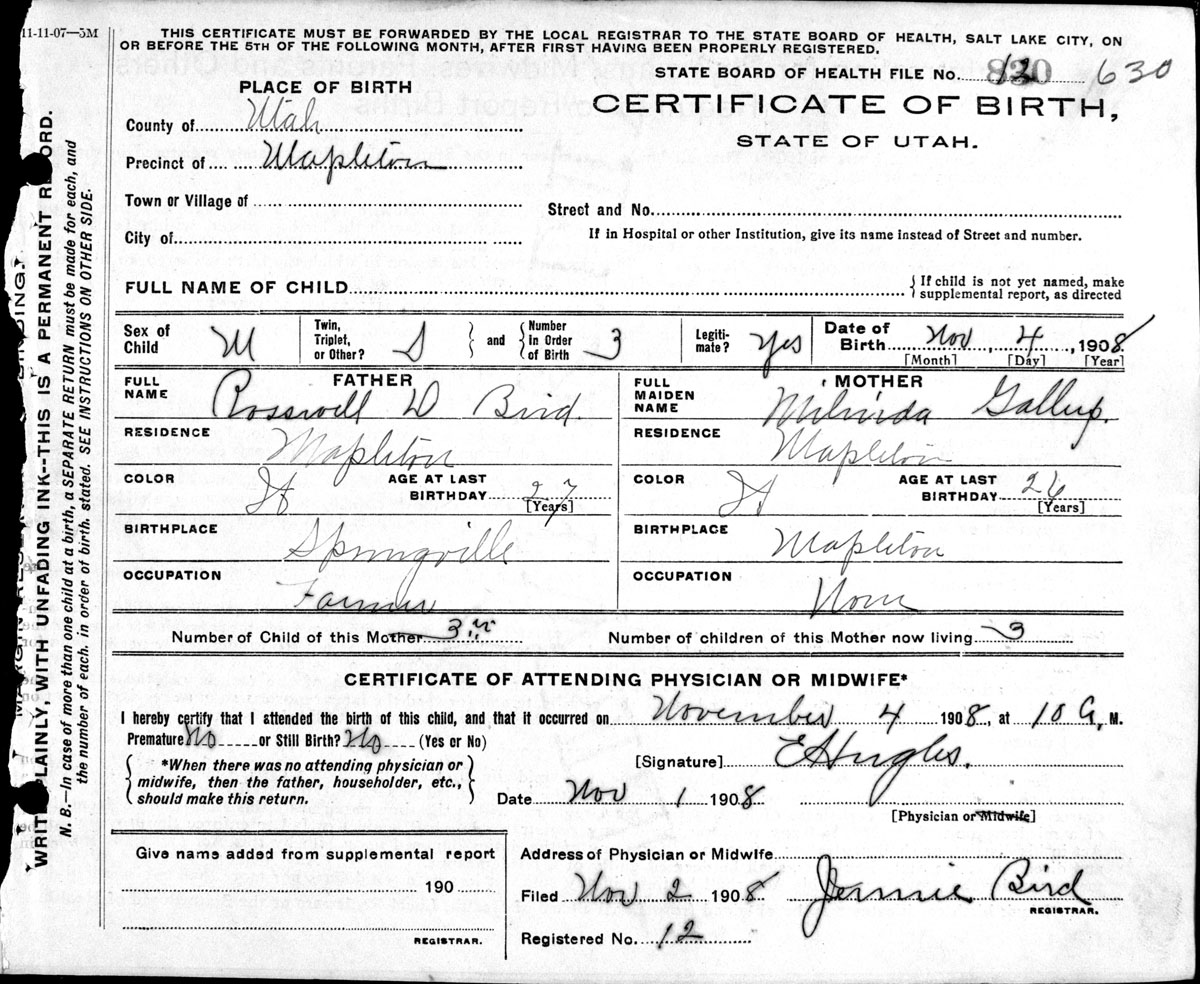 11-11-07—5M
THIS CERTIFICATE MUST BE FORWARDED BY THE LOCAL REGISTRAR TO THE STATE BOARD OF HEALTH, SALT LAKE CITY, ON
OR BEFORE THE 5TH OF THE FOLLOWING MONTH, AFTER FIRST HAVING BEEN PROPERLY REGISTERED.
STATE BOARD OF HEALTH FILE No. 630
PLACE OF BIRTH
CERTIFICATE OF BIRTH,
STATE OF UTAH.
County of Utah
Precinct of Mapleton
Town or Village of
Street and No.
City of
If in Hospital or other Institution, give its name instead of Street and number.
FULL NAME OF CHILD
{If child is not yet named, make
supplemental report, as directed
Sex of Child M
Twin, Triplet, or Other? S
and
Number in Order of Birth 3
Legiti-mate? Yes
Date of Birth Nov, 4, 1908
[Month] [Day] [Year]
FATHER
FULL NAME Rosswell D Bird.
RESIDENCE Mapleton
COLOR W AGE AT LAST BIRTHDAY 27
[Years]
BIRTHPLACE Springville
OCCUPATION Farmer
MOTHER
FULL MAIDEN NAME Milvinda Gallup.
RESIDENCE Mapleton
COLOR W AGE AT LAST BIRTHDAY 26
[Years]
BIRTHPLACE Mapleton
OCCUPATION Non
Number of Child of this Mother 3
Number of children of this Mother now living 3
CERTIFICATE OF ATTENDING PHYSICIAN OR MIDWIFE*
I hereby certify that I attended the birth of this child, and that it occurred on November 4 1908, at 10 A, M.
Premature No or Still Birth? No (Yes or No)
*When there was no attending physician or
midwife, then the father, householder, etc.,
should make this return.
[Signature] E Hughes.
Date Nov 1 1908
[Physician or Midwife]
Give name added from supplemental report
190
REGISTRAR.
Address of Physician or Midwife
Filed Nov 2 1908 Jennie Bird
REGISTRAR.
Registered No. 12
WRITE PLAINLY, WITH UNFADING INK--THIS IS A PERMANENT RECORD.
N. B.—In case of more than one child at a birth, a SEPARATE RETURN must be made for each, and
the number of each. in order of birth. stated. SEE INSTRUCTIONS ON OTHER SIDE.